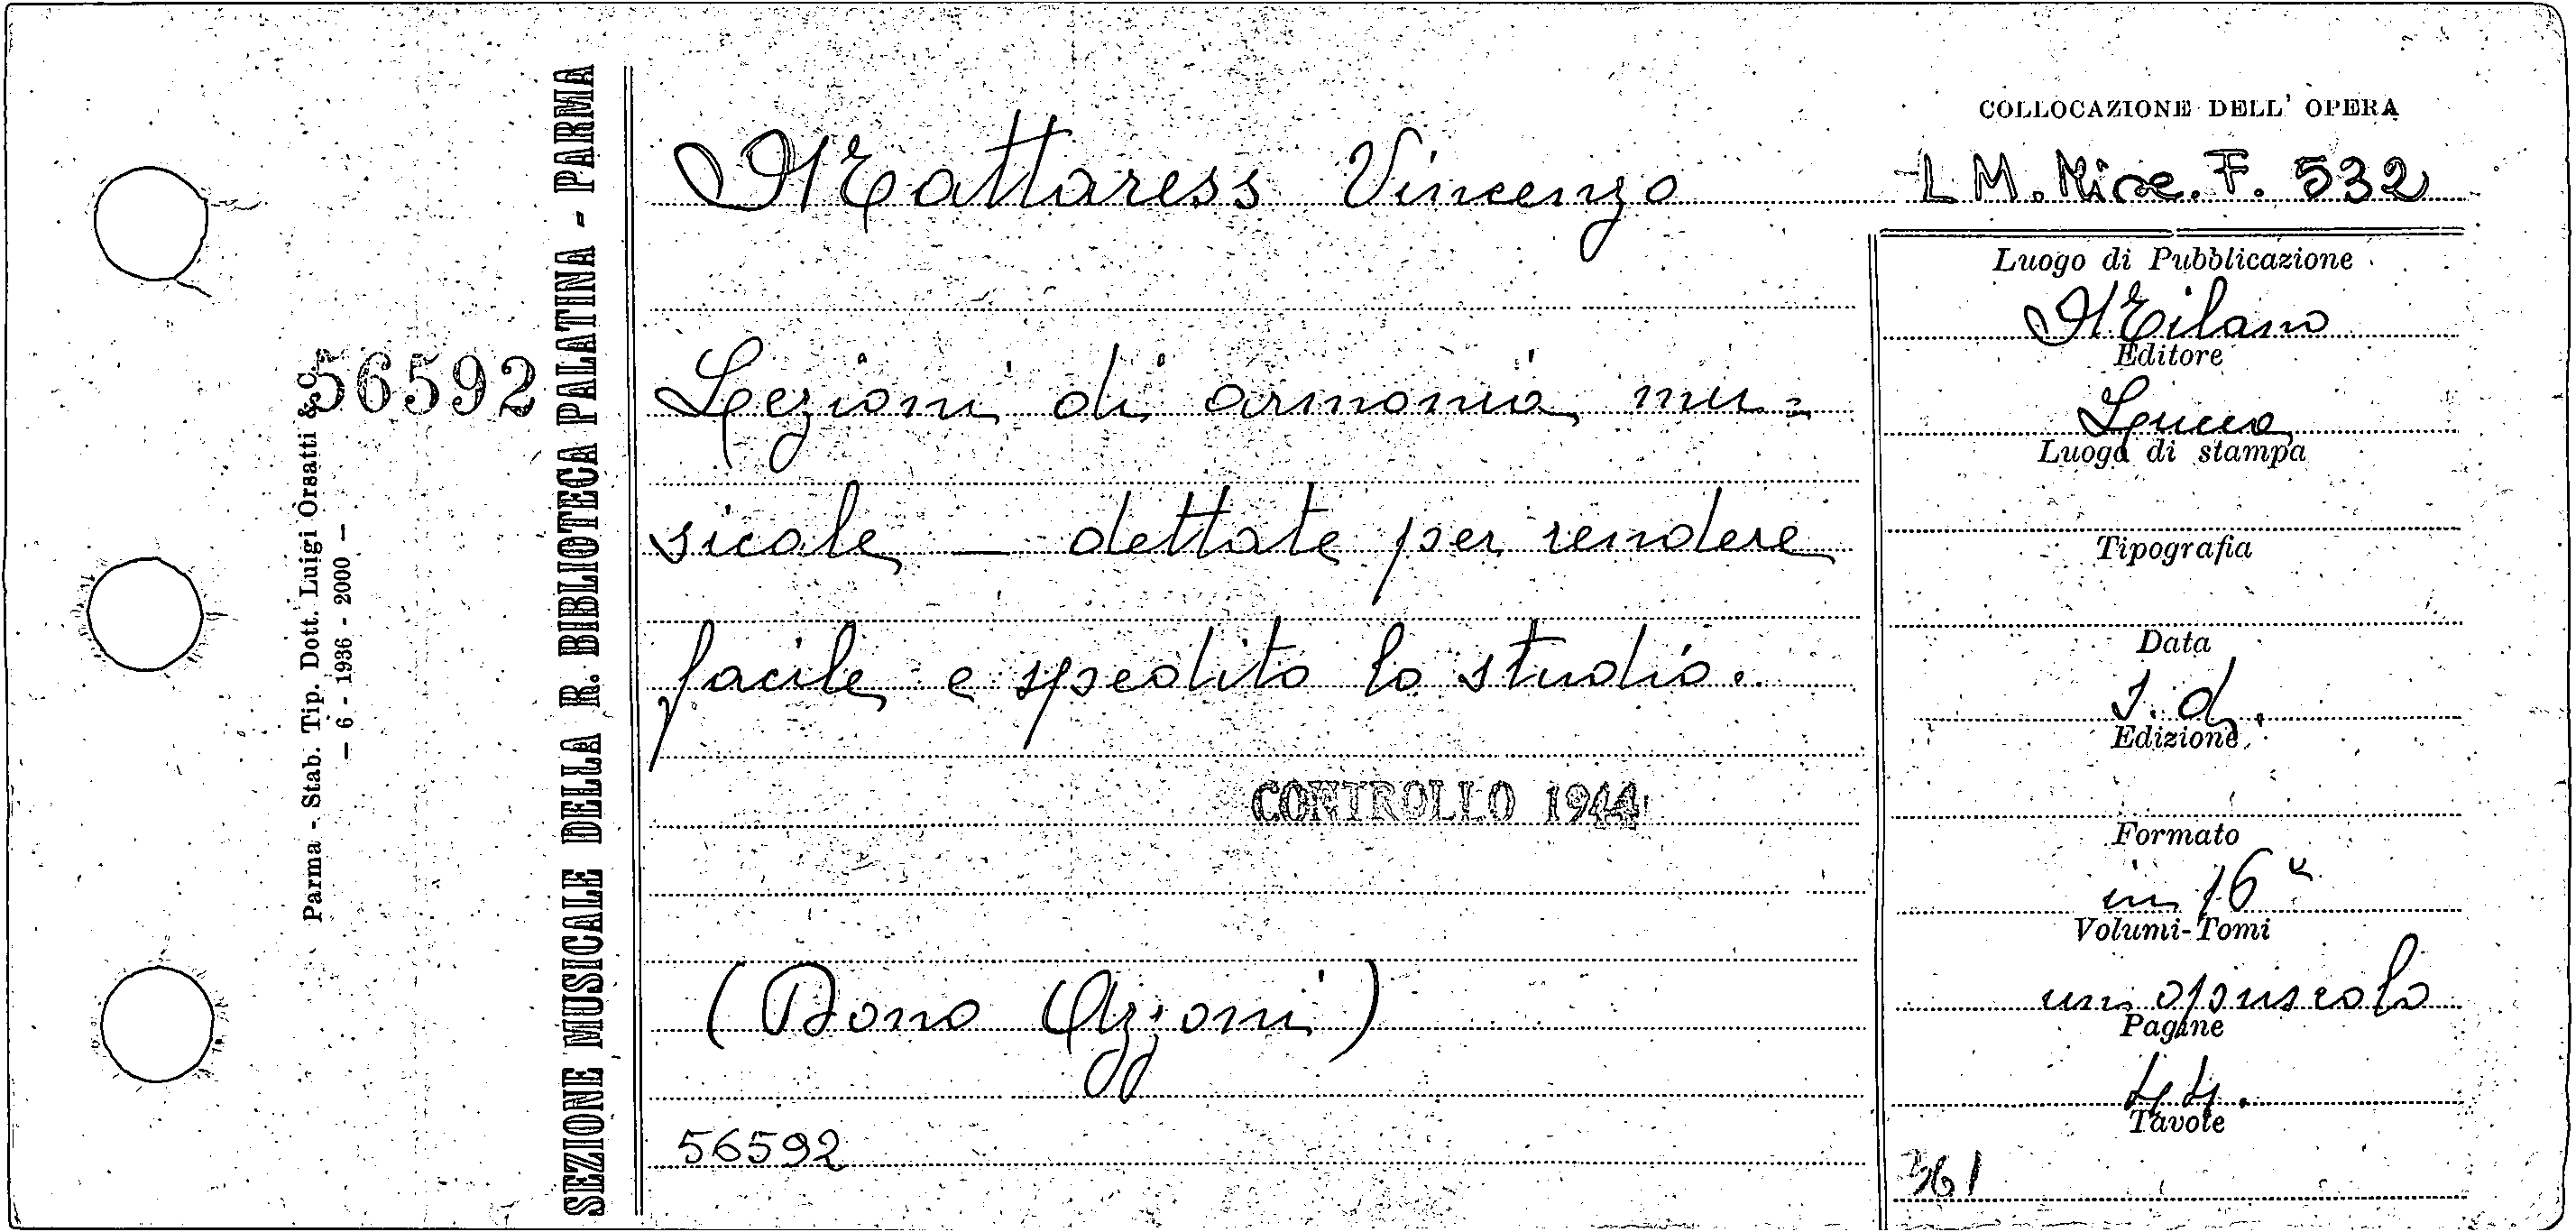 SEZIONE MUSICALE DELLA R. BIBLIOTECA PALATINA - PARMA
Parma - Stab. Tip. Dott. Luigi Orsatti & C.
- 6 - 1936 - 2000 -
56592
Mattaress Vincenzo
Lezioni di armonia mu=
sicale — dettate per rendere
facile e spedito lo studio.
CONTROLLO 1944
(Dono Azzoni)
56592
COLLOCAZIONE DELL' OPERA
L M. Misc. F. 532
Luogo di Pubblicazione
Milano
Editore
Lucca
Luogo di stampa
Tipografia
Data
s. d.
Edizione
Formato
in 16°
Volumi-Tomi
un opuscolo
Pagine
44.
Tavole
361